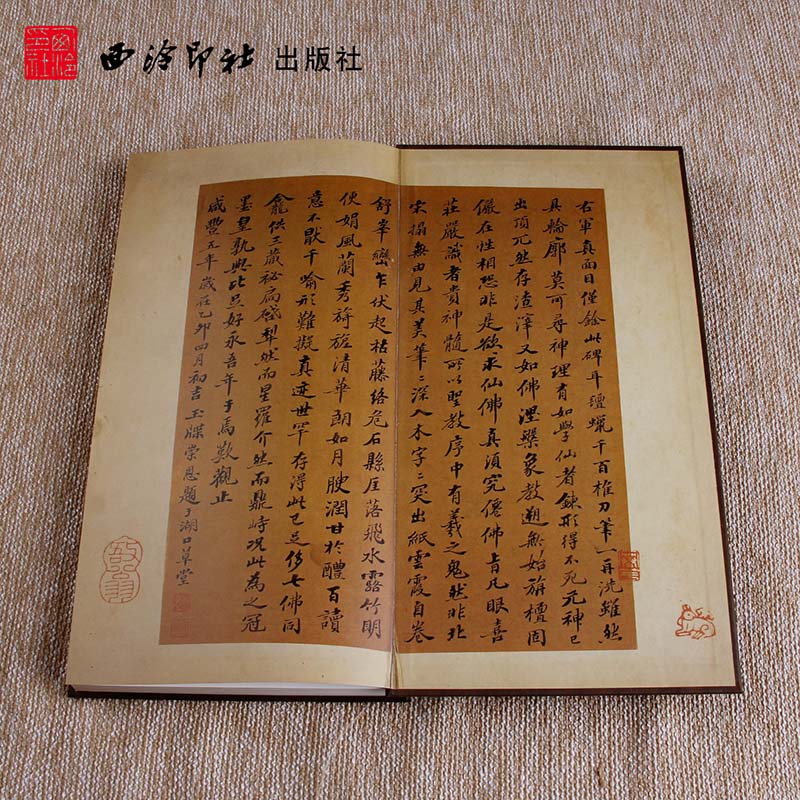 西泠印社 出版社
右軍真面目僅餘此碑耳氊蠟千百椎刀筆一再洗雖然
具輪廓莫可尋神理有如學仙者鍊形得不死元神已
出頂冗然存渣滓又如佛涅槃象教遡無始旃檀固
儼在性相恐非是欲求仙佛真須究僊佛旨凡眼喜
莊嚴識者貴神髓所以聖教序中有羲之鬼然非北
宋搨無由見其美筆〻深入木字〻突出紙雲霞自卷
舒峯巒乍伏起枯藤絡危石縣厓落飛水露竹明
便娟風蘭秀旖旎清華朗如月腴潤甘於醴百讀
意不猒千喻形難擬真迹世罕存得此已足侈七佛同
龕供三藏祕扃啓犁然而星羅介然而鼎峙況此為之冠
墨皇孰與比足好永吾年于焉歎觀止
咸豐五年歲在乙卯四月初吉玉牒崇恩題于湖口草堂